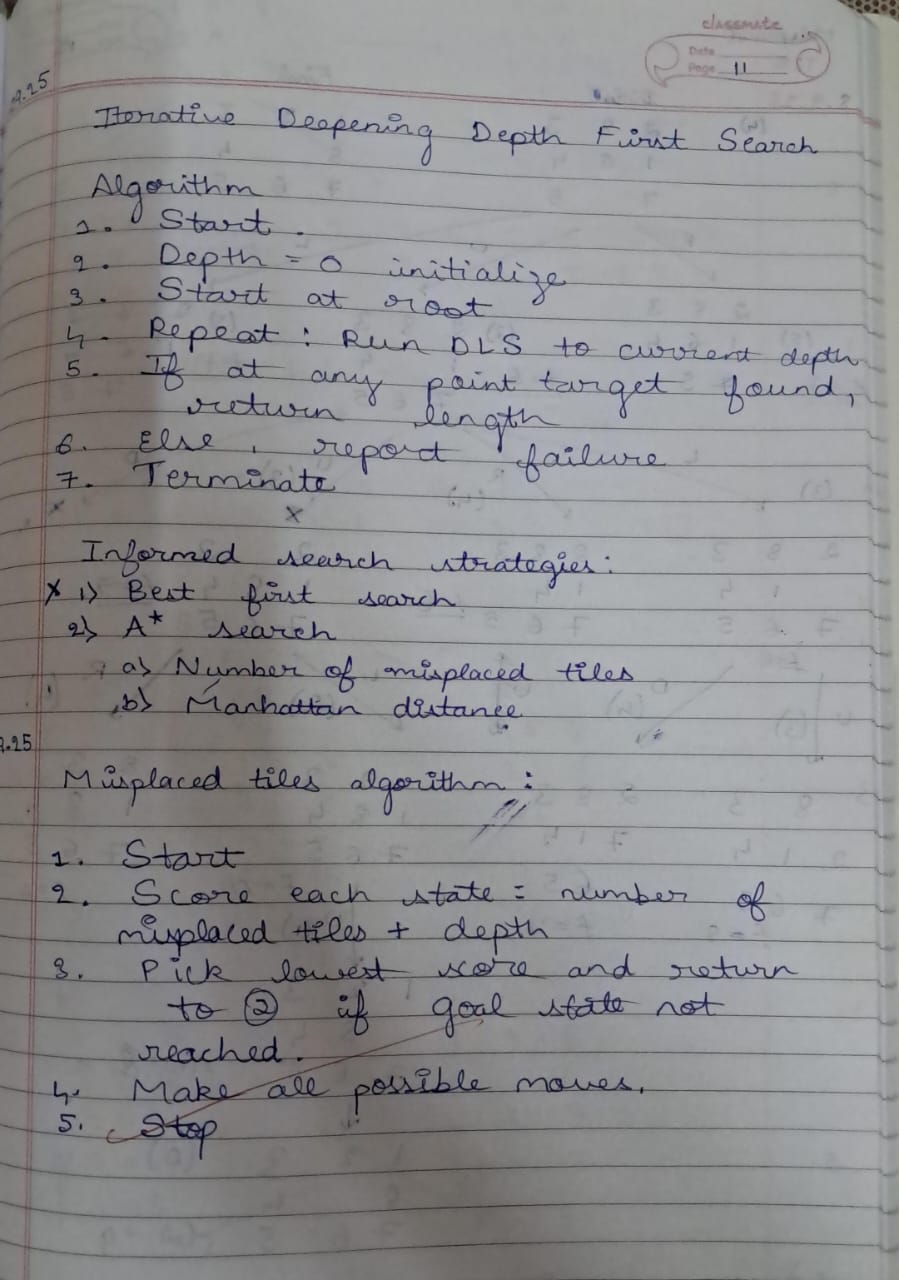 classmate
Date
Page 11
9.25
Iterative Deepening Depth First Search
Algorithm
1. Start.
2. Depth = 0 initialize
3. Start at root
4. Repeat : Run DLS to current depth
5. If at any point target found,
return length
6. Else, report failure
7. Terminate
x
Informed search strategies:
x 1) Best first search
2) A* search
a) Number of misplaced tiles
b) Manhattan distance
9.25
Misplaced tiles algorithm:
1. Start
2. Score each state = number of
misplaced tiles + depth
3. Pick lowest score and return
to ② if goal state not
reached.
4. Make all possible moves.
5. Stop